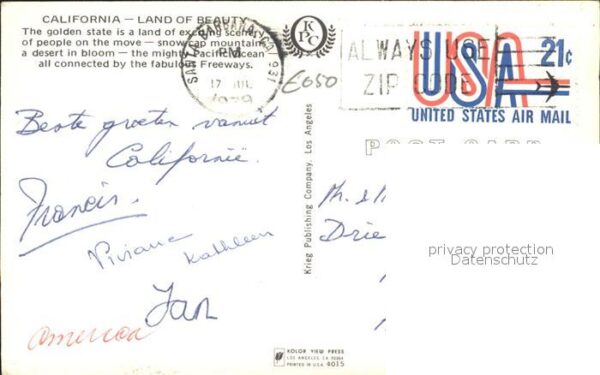 CALIFORNIA — LAND OF BEAUTY
The golden state is a land of exciting scenery,
of people on the move — snow cap mountains,
a desert in bloom — the mighty Pacific Ocean
all connected by the fabulous Freeways.
KPC
SANTA BARBARA, CA 931
PM
17 JUL
ALWAYS USE
ZIP CODE
USA 21c
UNITED STATES AIR MAIL
POST CARD
Beste groeten vanuit
Californië.
Francis.
Viviane
Kathleen
Jan
America
Krieg Publishing Company, Los Angeles
Drie
privacy protection
Datenschutz
KOLOR VIEW PRESS
LOS ANGELES, CA
PRINTED IN U.S.A. 4015